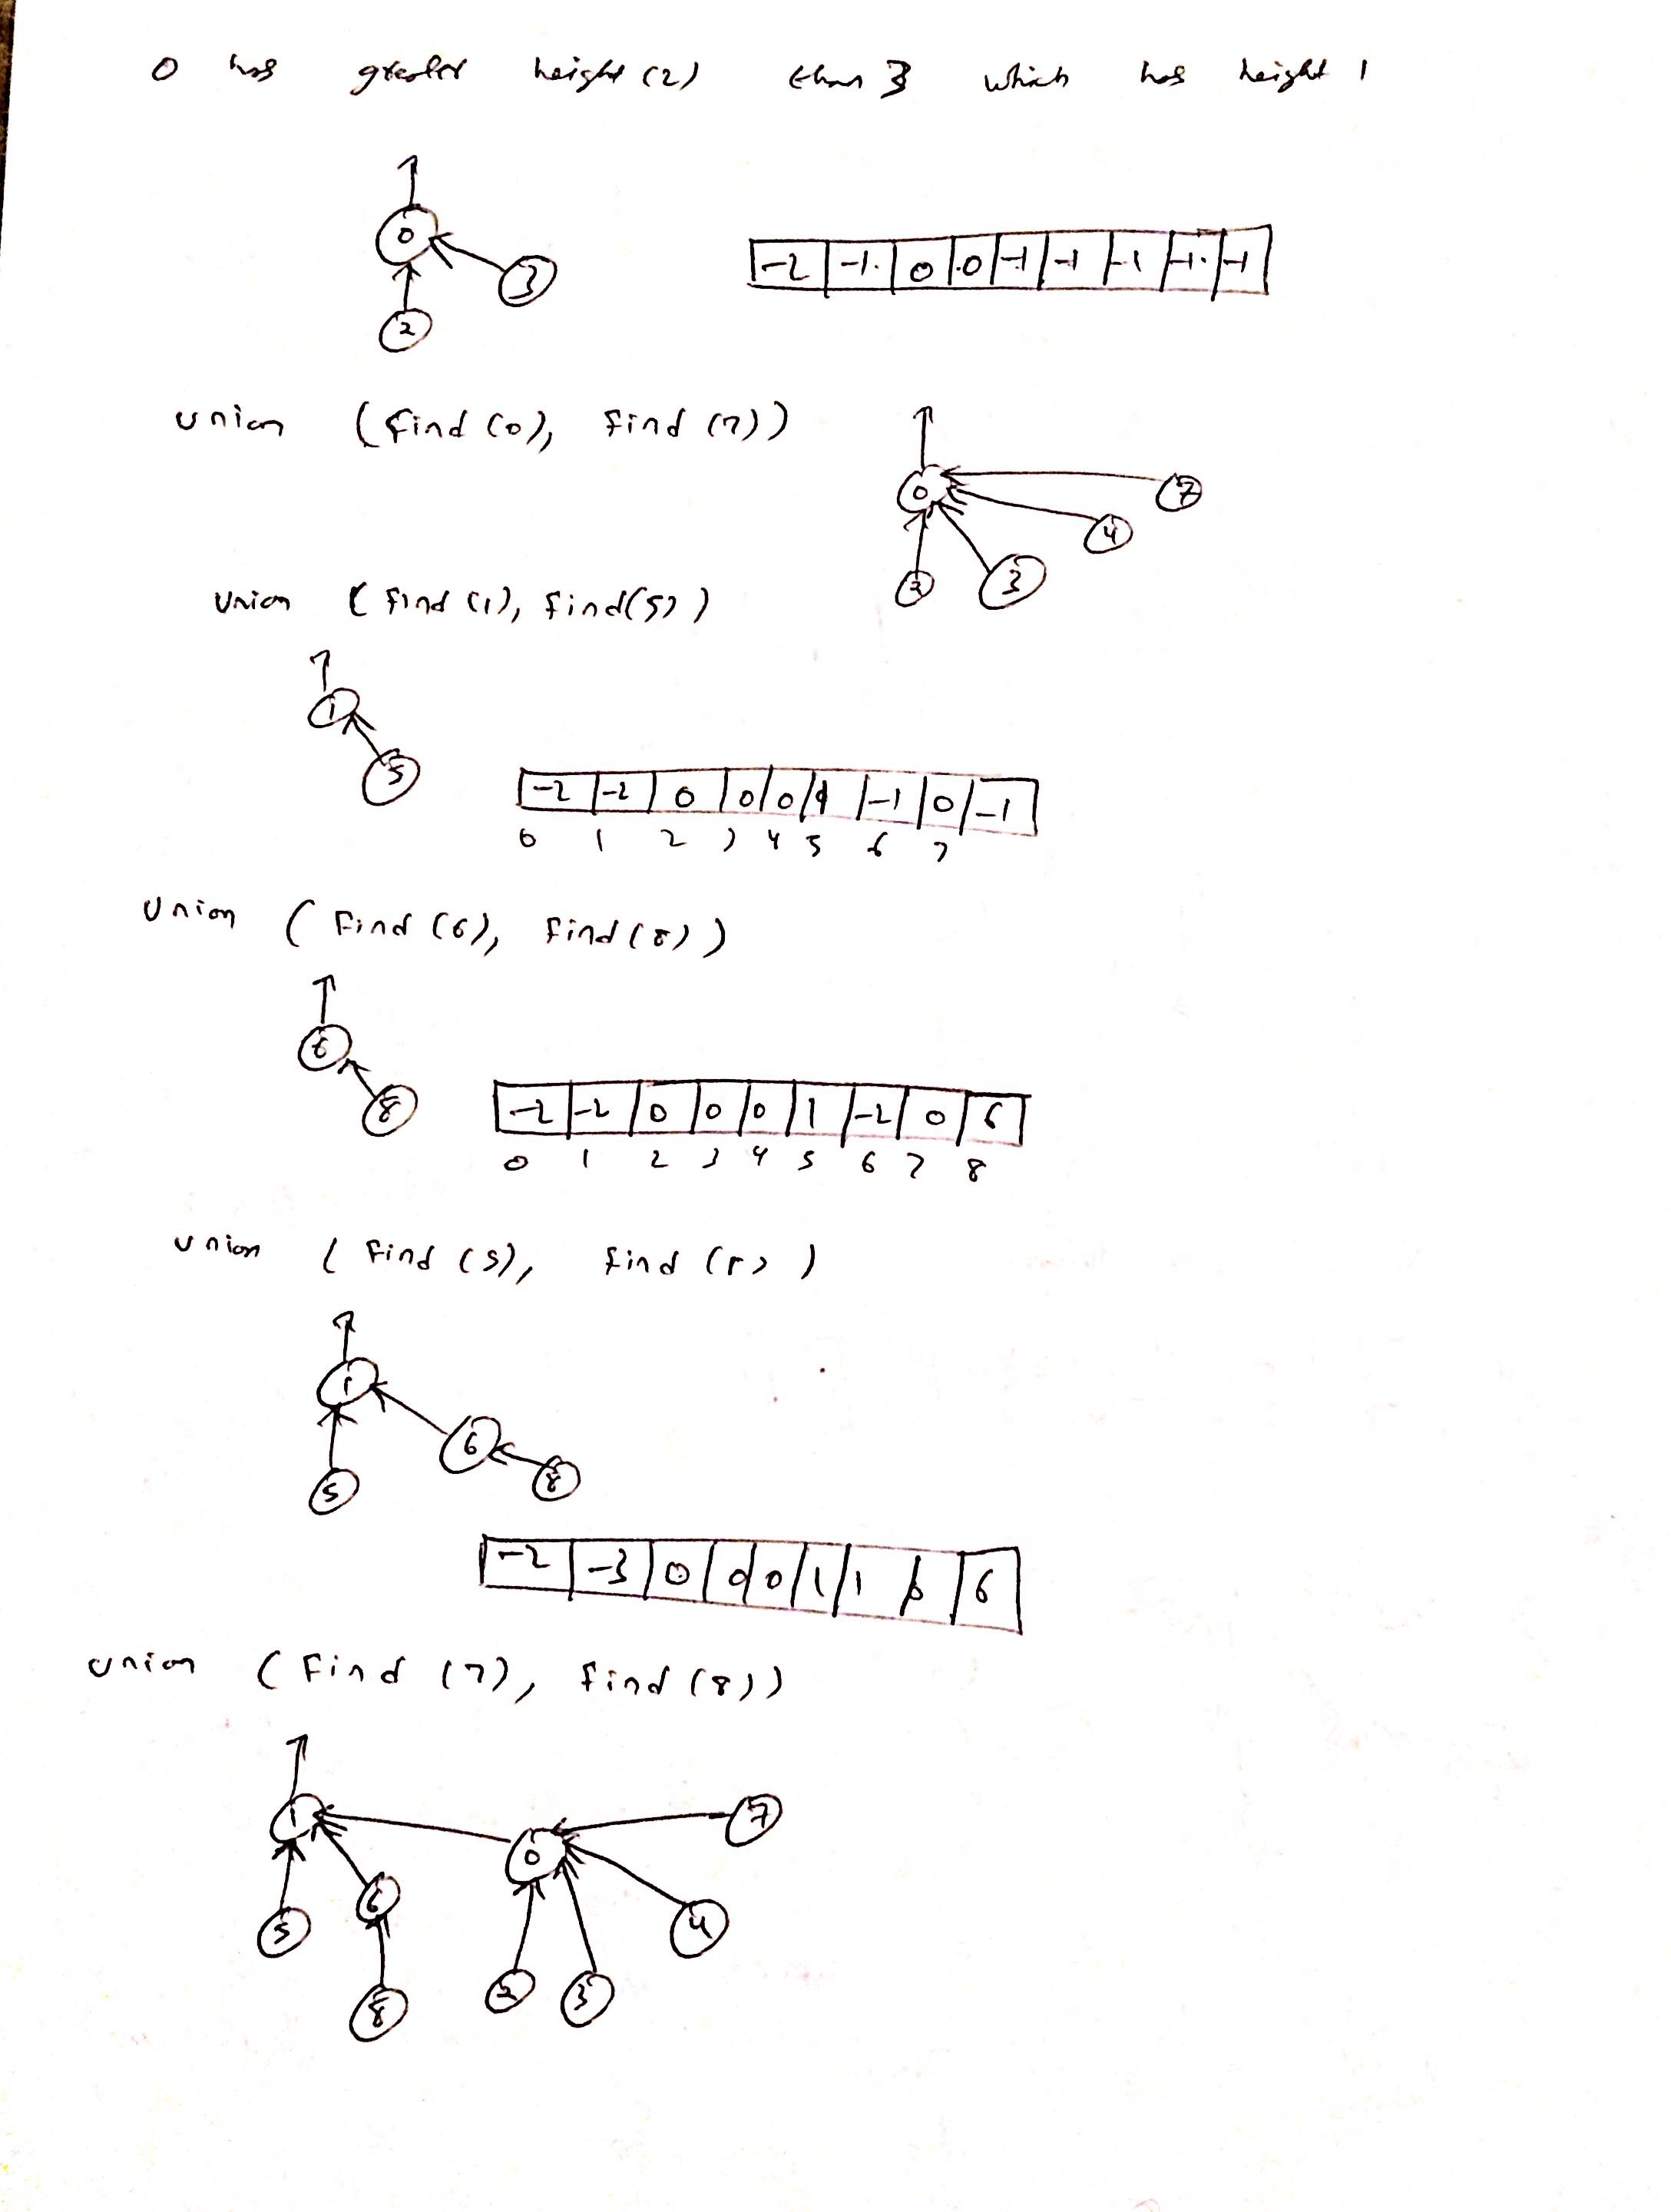 0 has greater height (2) than 3 which has height 1
0
3
2
-2 -1 0 0 -1 -1 -1 -1 -1
union (find (0), find (7))
0
7
4
2 3
Union (find (1), find(5))
1
5
-2 -2 0 0 0 1 -1 0 -1
0 1 2 3 4 5 6 7
Union (find (6), find (8))
6
8
-2 -2 0 0 0 1 -2 0 6
0 1 2 3 4 5 6 7 8
union (find (5), find ( ))
1
6
8
5
-2 -3 0 0 0 1 1 0 6
union (find (7), find (8))
1
7
0
6
5
4
2 3
8